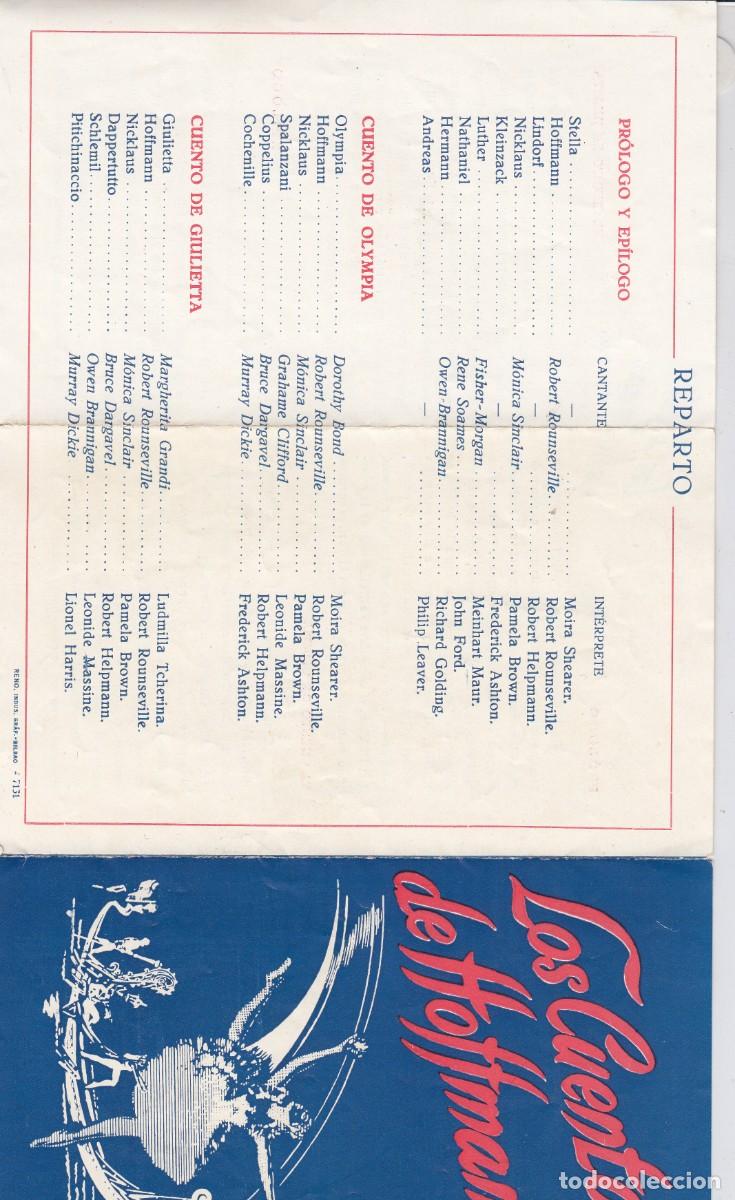 REPARTO
PRÓLOGO Y EPÍLOGO
CANTANTE INTÉRPRETE
Stella — Moira Shearer.
Hoffmann Robert Rounseville. Robert Rounseville.
Lindorf — Robert Helpmann.
Nicklaus Mónica Sinclair Pamela Brown.
Kleinzack — Frederick Ashton.
Luther Fisher-Morgan Meinhart Maur.
Nathaniel Rene Soames John Ford.
Hermann Owen-Brannigan Richard Golding.
Andreas — Philip Leaver.
CUENTO DE OLYMPIA
Olympia Dorothy Bond Moira Shearer.
Hoffmann Robert Rounseville Robert Rounseville.
Nicklaus Mónica Sinclair Pamela Brown.
Spalanzani Grahame Clifford Leonide Massine.
Coppelius Bruce Dargavel Robert Helpmann.
Cochenille Murray Dickie Frederick Ashton.
CUENTO DE GIULIETTA
Giulietta Margherita Grandi Ludmilla Tcherina.
Hoffmann Robert Rounseville Robert Rounseville.
Nicklaus Mónica Sinclair Pamela Brown.
Dappertutto Bruce Dargavel Robert Helpmann.
Schlemil Owen Brannigan Leonide Massine.
Pitichinaccio Murray Dickie Lionel Harris.
RENO. INDUS. GRÁF.-BILBAO - 7131
Los Cuent
de Hoffman
todocoleccion